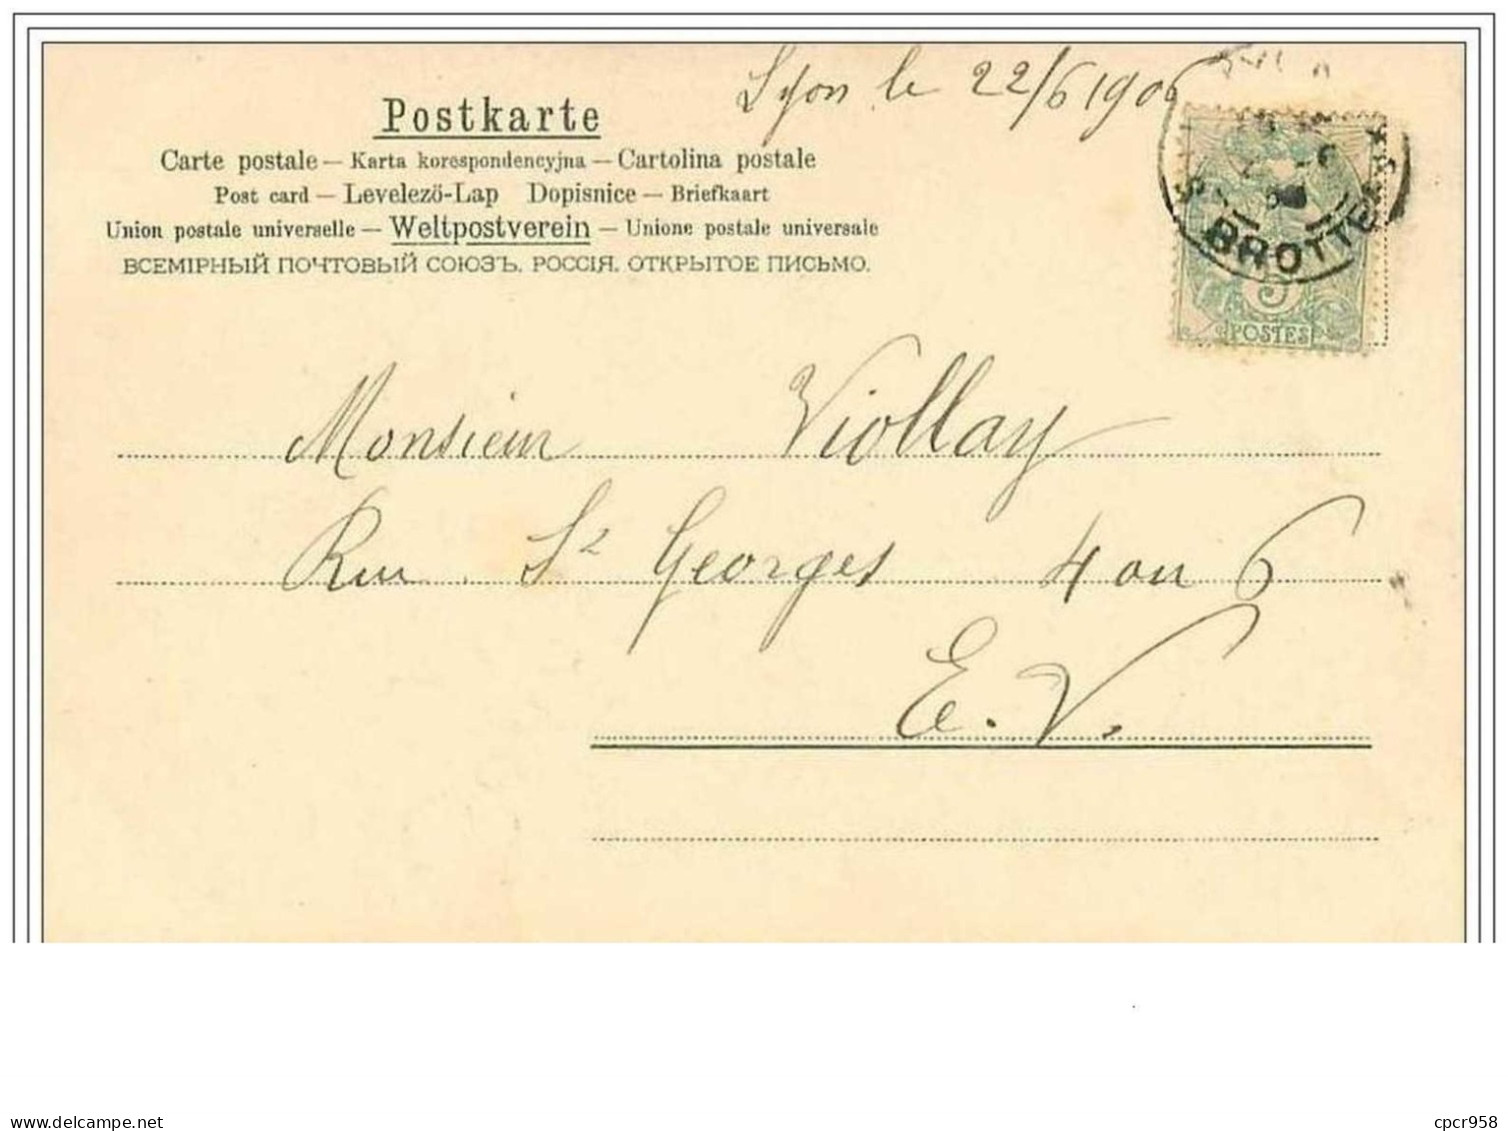 Lyon le 22/6 1906
Postkarte
Carte postale — Karta korespondencyjna — Cartolina postale
Post card — Levelező-Lap Dopisnice — Briefkaart
Union postale universelle — Weltpostverein — Unione postale universale
ВСЕМІРНЫЙ ПОЧТОВЫЙ СОЮЗЪ. РОССІЯ. ОТКРЫТОЕ ПИСЬМО.
BROTTE
5
POSTES
Monsieur Viollay
Rue St Georges 4 ou 6
E. V.
www.delcampe.net
cpcr958